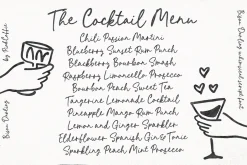 The Cocktail Menu
Chili Passion Martini
Blueberry Sunset Rum Punch
Blackberry Bourbon Smash
Raspberry Limoncello Prosecco
Bourbon Peach Sweet Tea
Tangerine Lemonade Cocktail
Pineapple Mango Rum Punch
Lemon and Ginger Sparkler
Elderflower Spanish Gin & Tonic
Sparkling Peach Mint Prosecco
by PinkCoffie
Bison Darling
Bison Darling